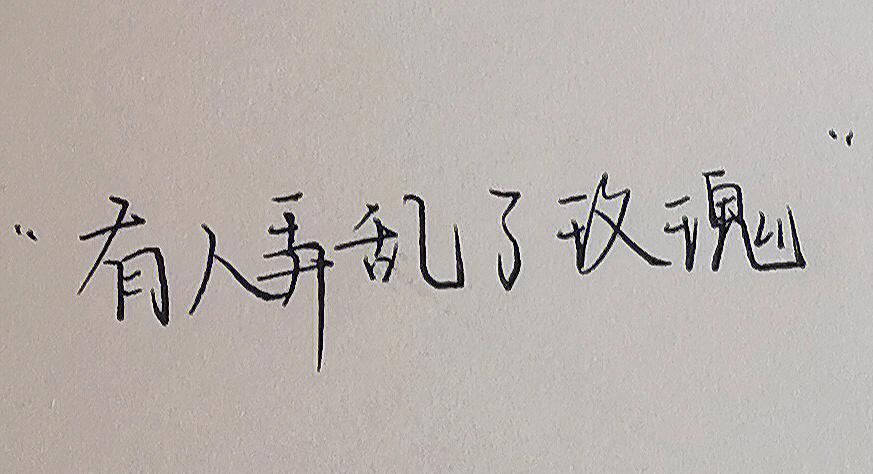 "有人弄乱了玫瑰"